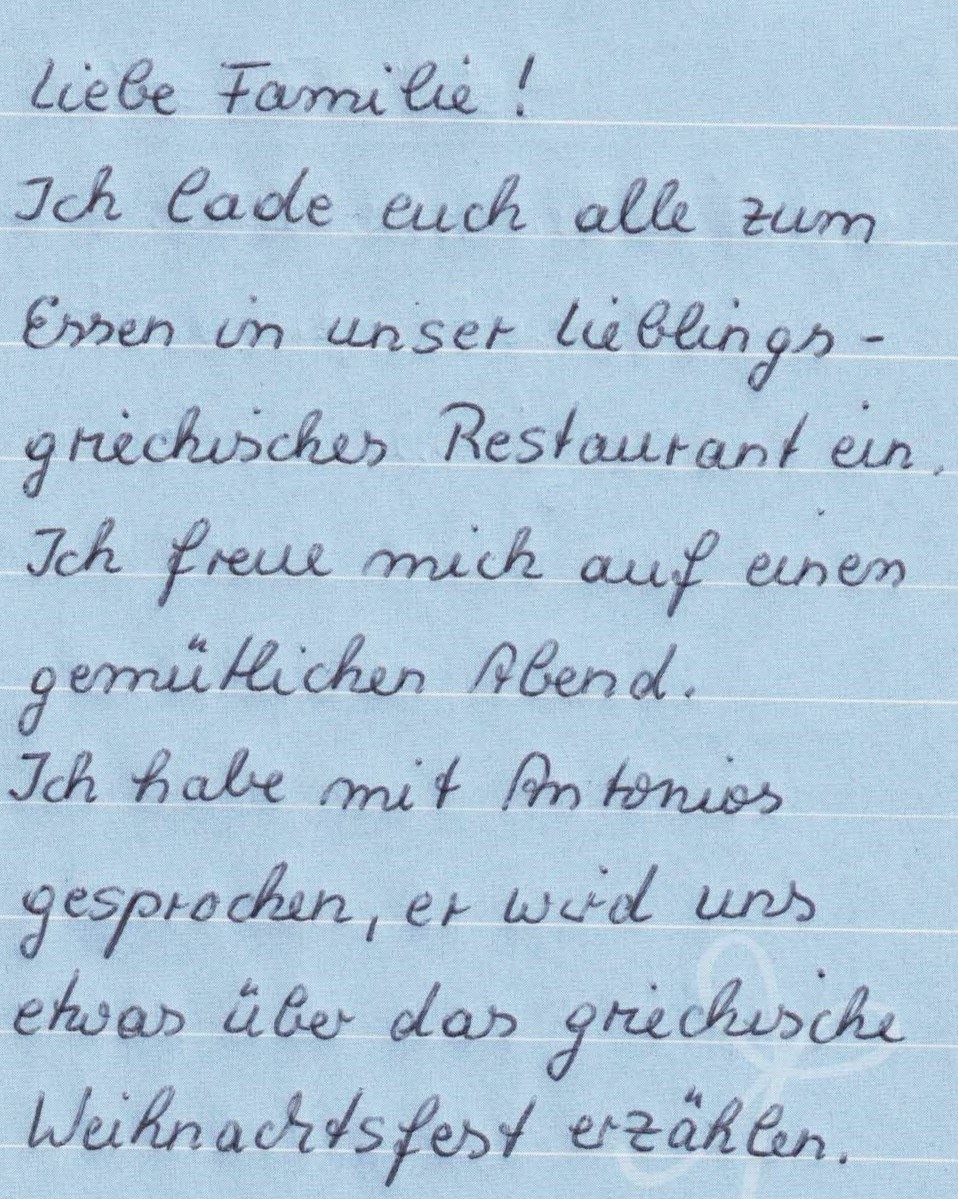 Liebe Familie!
Ich lade euch alle zum
Essen in unser Lieblings-
griechisches Restaurant ein.
Ich freue mich auf einen
gemütlichen Abend.
Ich habe mit Antonios
gesprochen, er wird uns
etwas über das griechische
Weihnachtsfest erzählen.